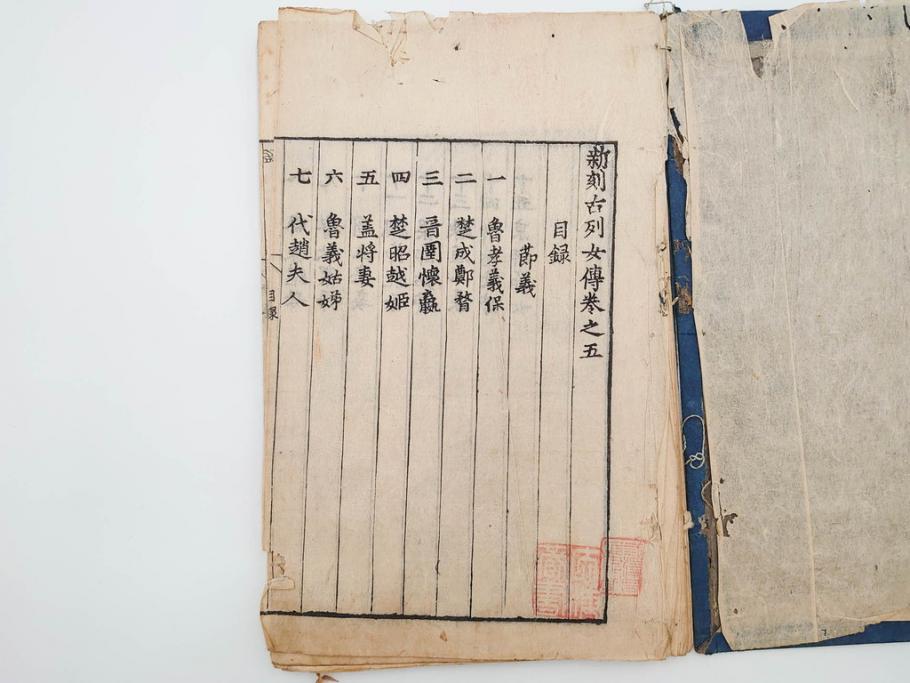 新刻古列女傳卷之五
目録
節義
一 魯孝義保
二 楚成鄭瞀
三 晋圉懷嬴
四 楚昭越姬
五 蓋將妻
六 魯義姑姊
七 代趙夫人
目录